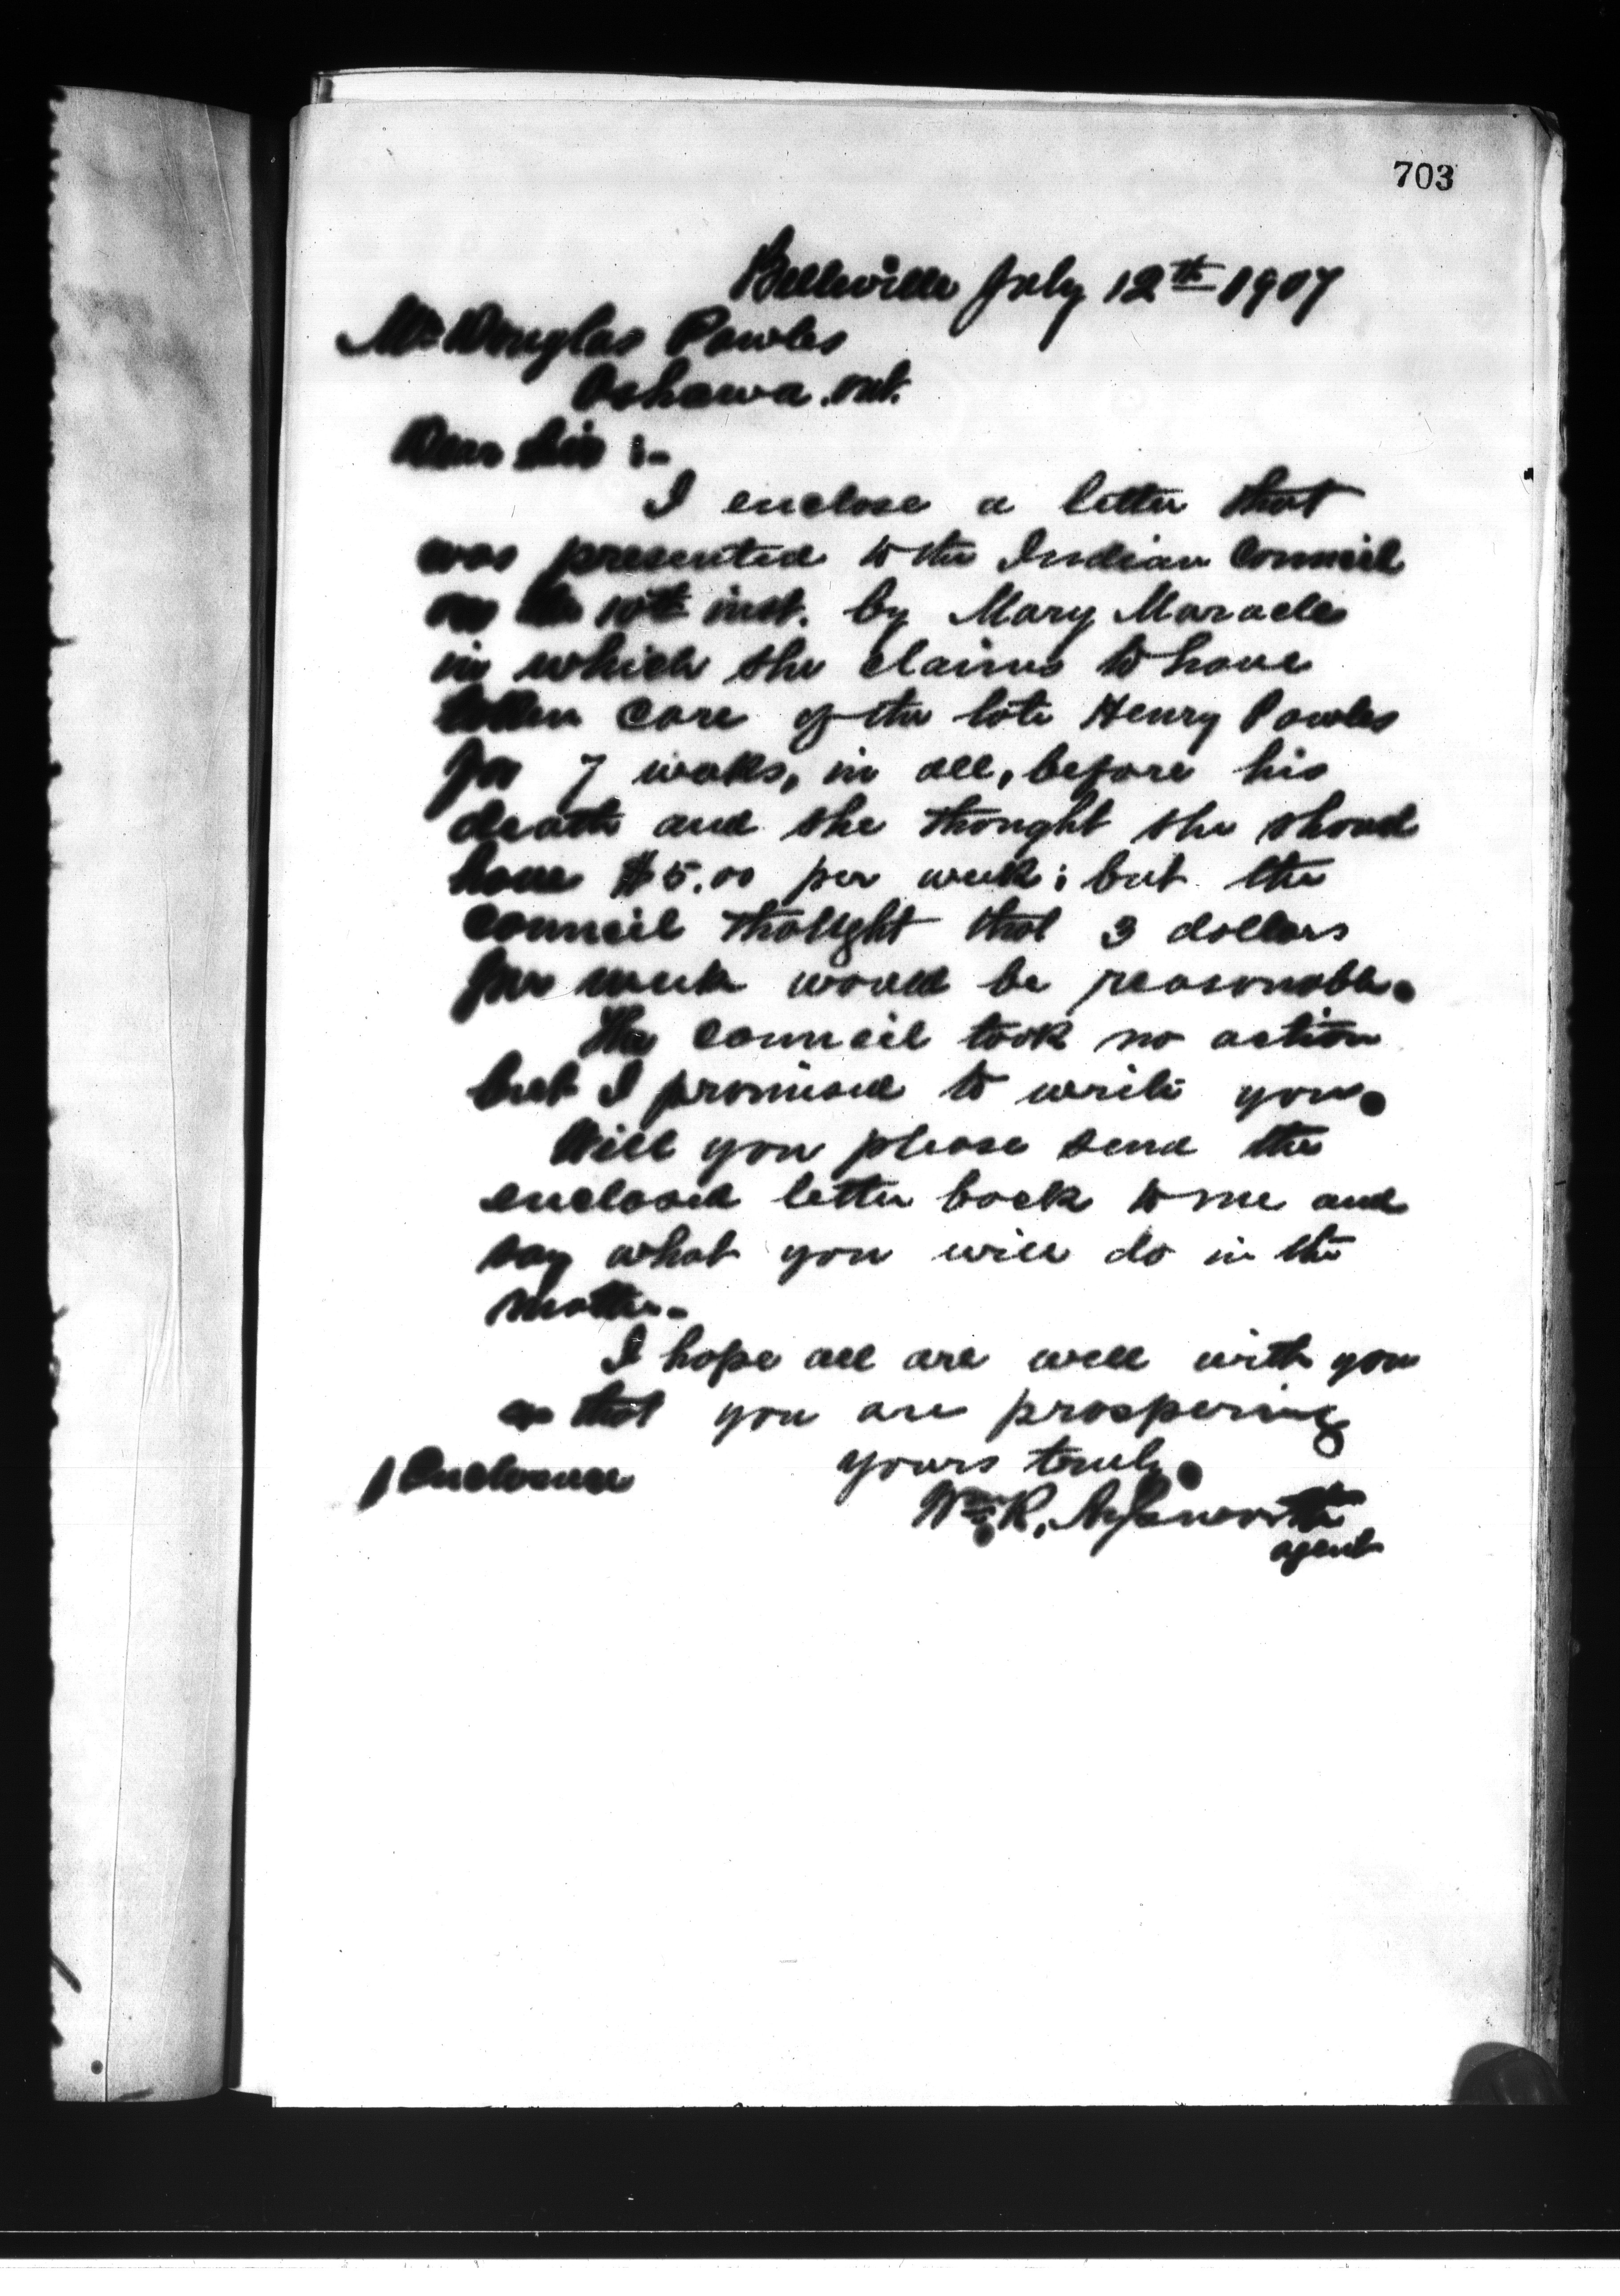 703
Belleville July 12th 1907
Mr Douglas Powles
Oshawa. Ont.
Dear Sir :-
I enclose a letter that
was presented to the Indian Council
on the 10th inst. by Mary Maracle
in which she claims to have
taken care of the late Henry Powles
for 7 weeks, in all, before his
death and she thought she shoud
have $5.00 per week; but the
Council thought that 3 dollars
per week would be reasonable.
The Council took no action
but I promised to write you.
Will you please send the
enclosed letter back to me and
say what you will do in the
matter.
I hope all are well with you
& that you are prospering
yours truly.
1 Enclosure
Wm R. Aylsworth
agent